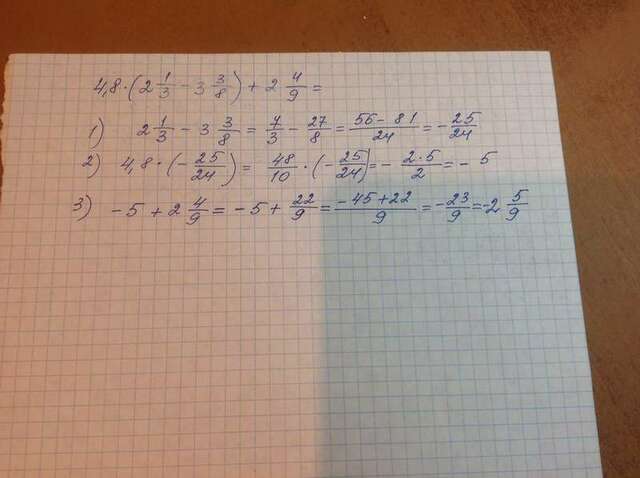 4,8·(2 1/3 - 3 3/8) + 2 4/9 =
1) 2 1/3 - 3 3/8 = 7/3 - 27/8 = 56-81/24 = -25/24
2) 4,8·(-25/24) = 48/10·(-25/24) = -2·5/2 = -5
3) -5 + 2 4/9 = -5 + 22/9 = -45+22/9 = -23/9 = -2 5/9